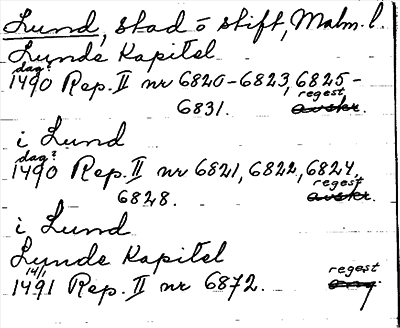 Lund, stad o stift, Malm. l.
Lunds Kapitel
dag?
1490 Rep. II nr 6820-6823, 6825-
6831. regest avskr.
i Lund
dag?
1490 Rep. II nr 6821, 6822, 6824,
6828. regest avskr.
i Lund
Lunds Kapitel
14/1
1491 Rep. II nr 6872. regest